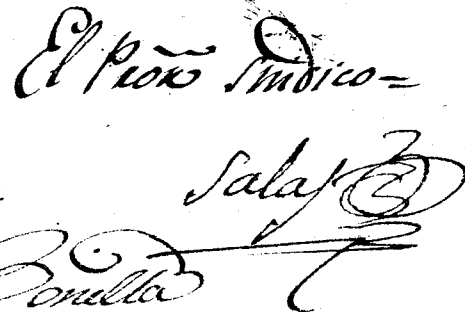 El Pror̃ Sindico=
Salas
Bonilla